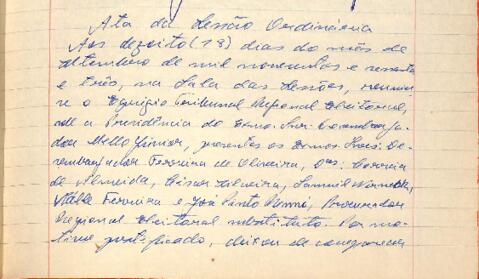 Ata da Sessão Ordinária
Aos dezoito (18) dias do mês de
setembro de mil novecentos e sessenta
e três, na Sala das Sessões, reuniu-
se o Egrégio Tribunal Regional Eleitoral,
sob a Presidência do Exmo. Snr. Desembarga-
dor Mello Júnior, presentes os Exmos. Snrs: De-
sembargador Ferreira de Oliveira, Drs: Correia
de Almeida, Cesar Silveira, Samuel
Ferreira e José Pinto, Procurador
Regional Eleitoral substituto. Por mo-
tivo justificado, deixou de comparecer